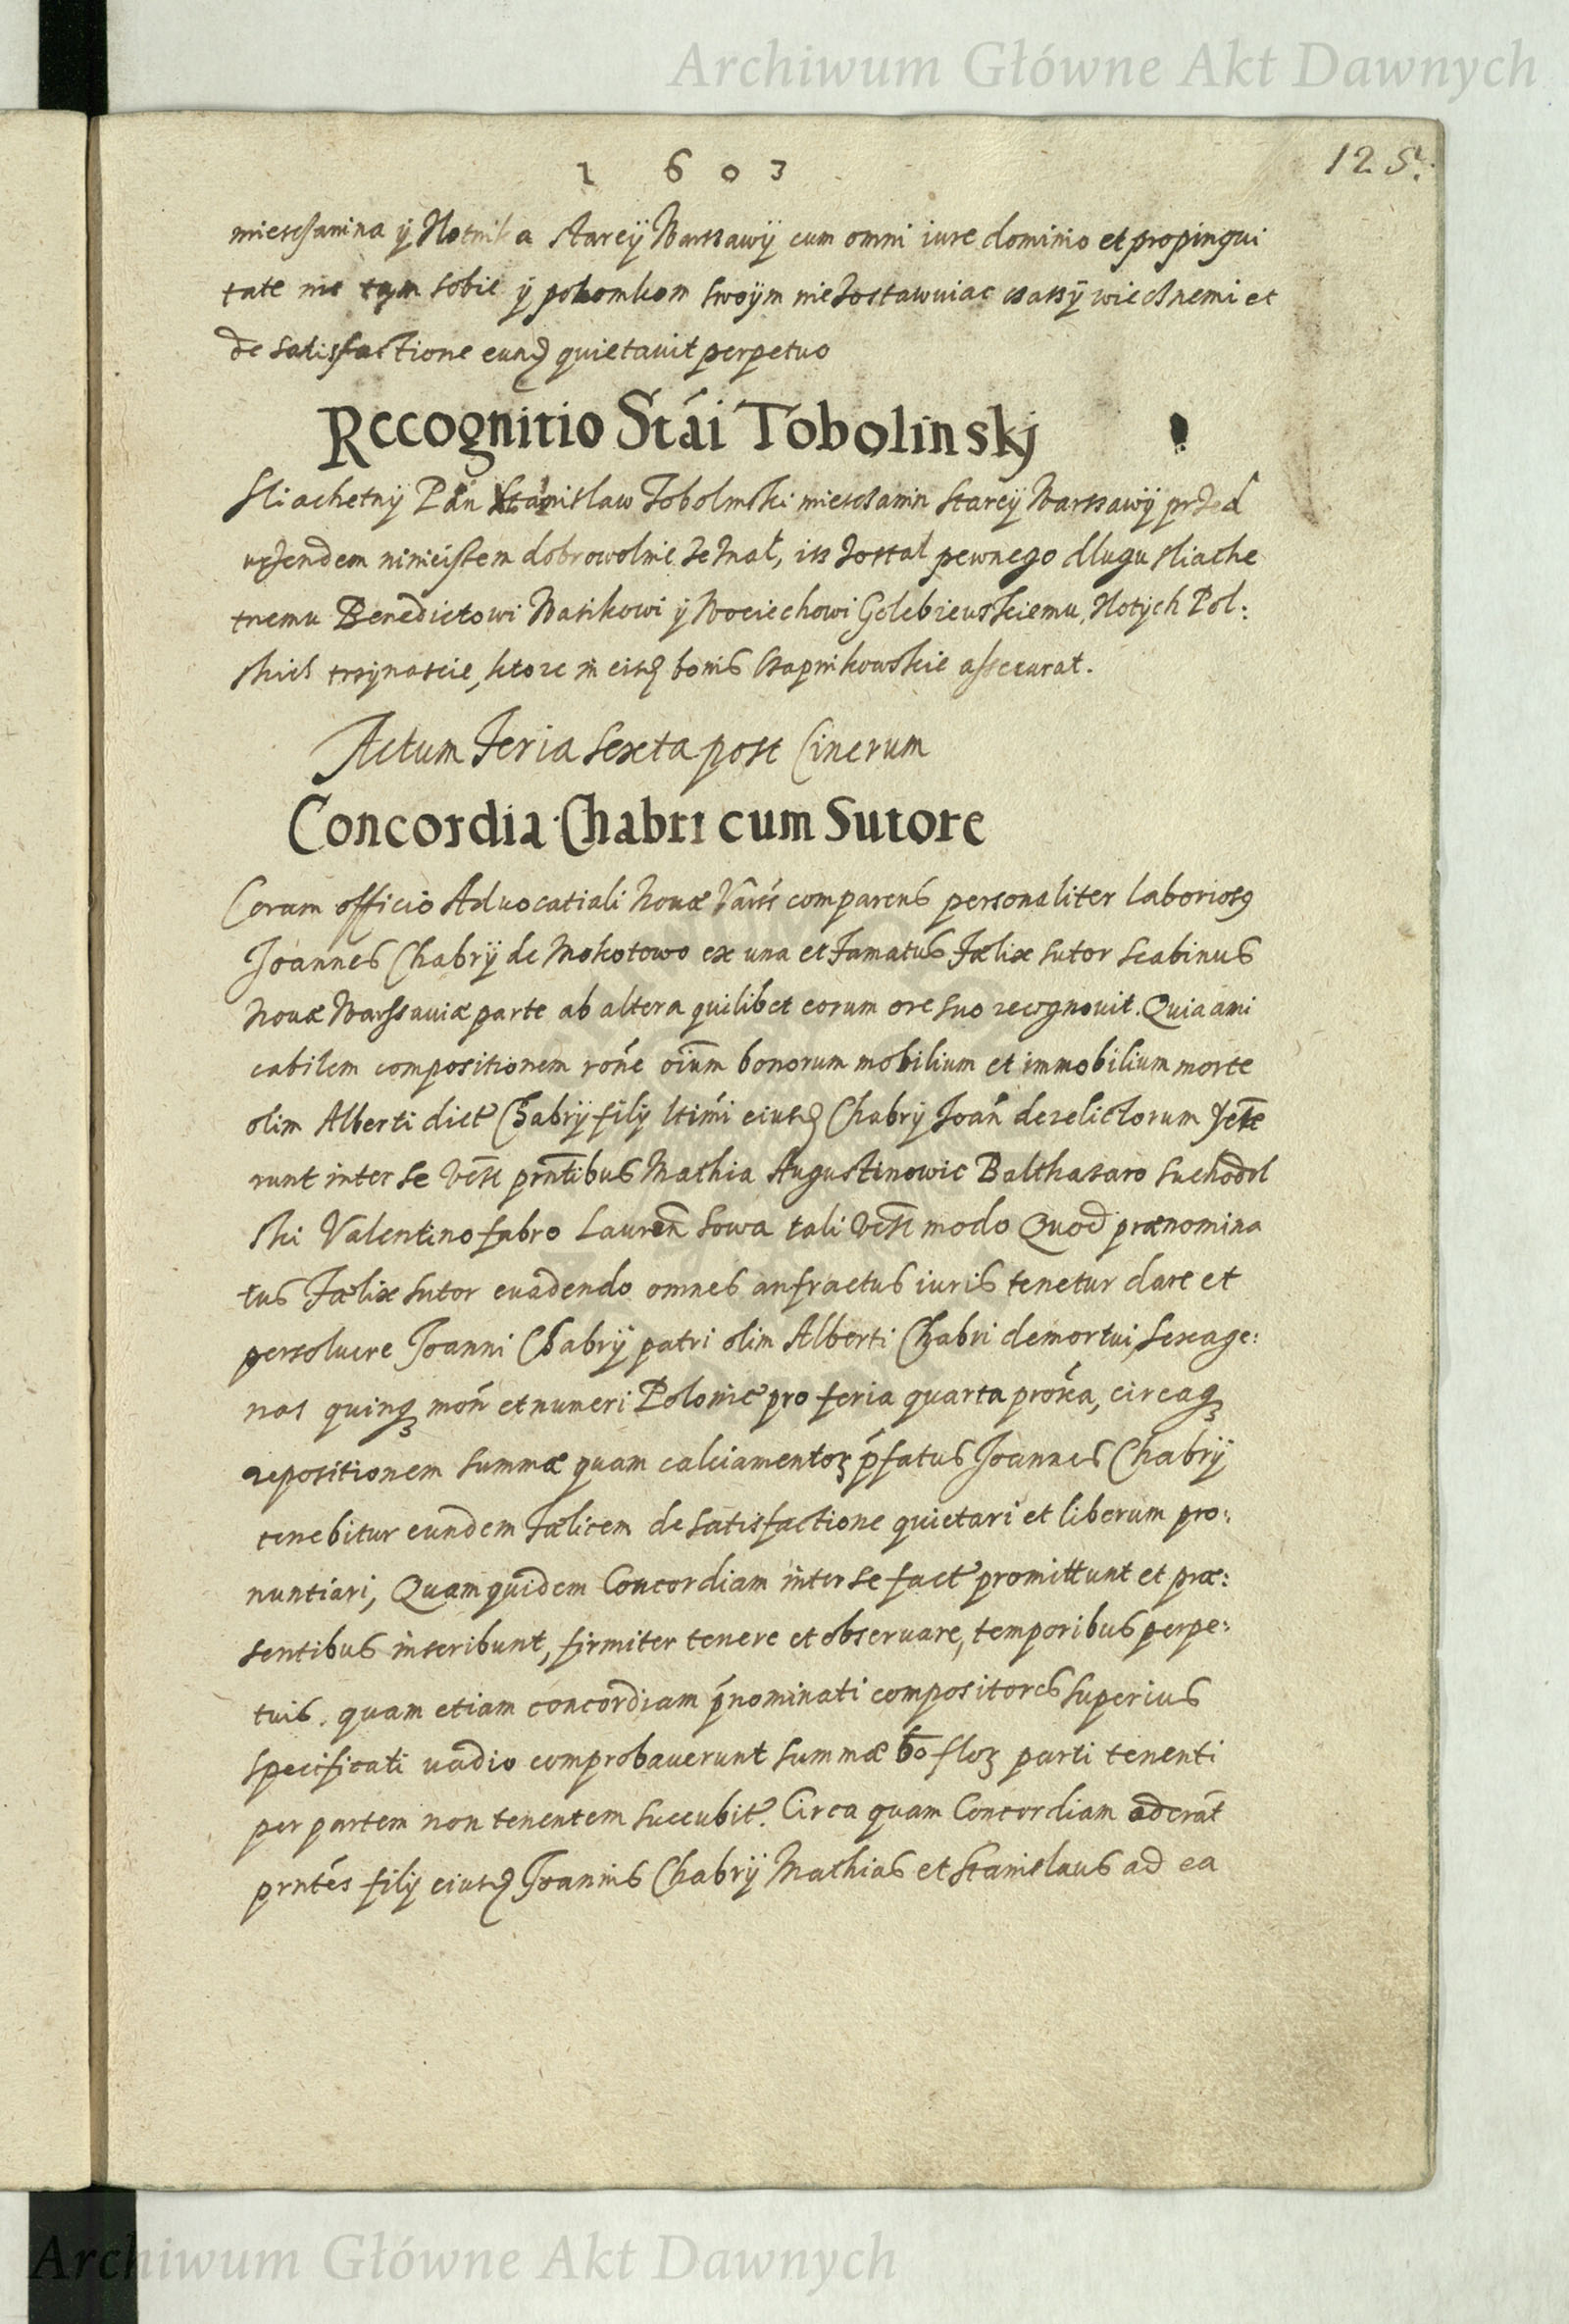 Archiwum Główne Akt Dawnych
1 6 0 3
125.
miesczanina ÿ Zlotnika starey Warssawÿ cum omni iure dominio et propingui
tate nic tam sobie ÿ potomkom swoÿm nie zostawuiac czassÿ wiecznemi et
de satisfactione eund quietauit perpetuo
Recognitio Stái Tobolinskj
Sliachetnÿ Pan Stanislaw Tobolinski miesczanin starey Warssawÿ przed
urzendem ninieiszem dobrowolnie zeznał, iss został pewnego dlugu sliache
tnemu Benedictowi Wasikowi ÿ Wociechowi Golebieuskiemu, Zlotych Pol:
skich trzynascie, ktore in eisd bonis Czapnikowskie assecurat.
Actum Feria sexta post Cinerum
Concordia Chabri cum Sutore
Coram officio Aduocatiali Nouæ Vars comparens personaliter laboriosꝰ
Joannes Chabrÿ de Mokotowo ex una et Famatus Fælix sutor scabinus
Nouæ Warssauiæ parte ab altera quilibet eorum ore suo recognouit. Quia ami
cabilem compositionem rone oium bonorum mobilium et immobilium morte
olim Alberti dict Chabrÿ filÿ ltimi eiusd Chabrÿ Joan derelictorum fece
runt inter se prntibus Mathia Augustinowic Balthasaro Suchodol
ski Valentino fabro Lauren Sowa tali modo Quod prænomina
tus Fælix sutor euadendo omnes anfractus iuris tenetur dare et
persoluere Joanni Chabrÿ patri olim Alberti Chabri demortui, sexage:
nas quinqꝫ mon et numeri Polonic pro feria quarta proxa, circaqꝫ
repositionem summæ quam calciamentoꝝ pfatus Joannes Chabrÿ
tenebitur eundem Fælicem de satisfactione quietari et liberum pro:
nuntiari, Quam quidem Concordiam inter se fact promittunt et præ:
sentibus inscribunt, firmiter tenere et obseruare, temporibus perpe:
tuis. quam etiam concordiam pnominati compositores superius
specificati uadio comprobauerunt summæ floꝝ parti tenenti
per partem non tenentem succubit. Circa quam Concordiam aderat
prntes filÿ eiusd Joannis Chabrÿ Mathias et Stanislaus ad ea
Archiwum Główne Akt Dawnych